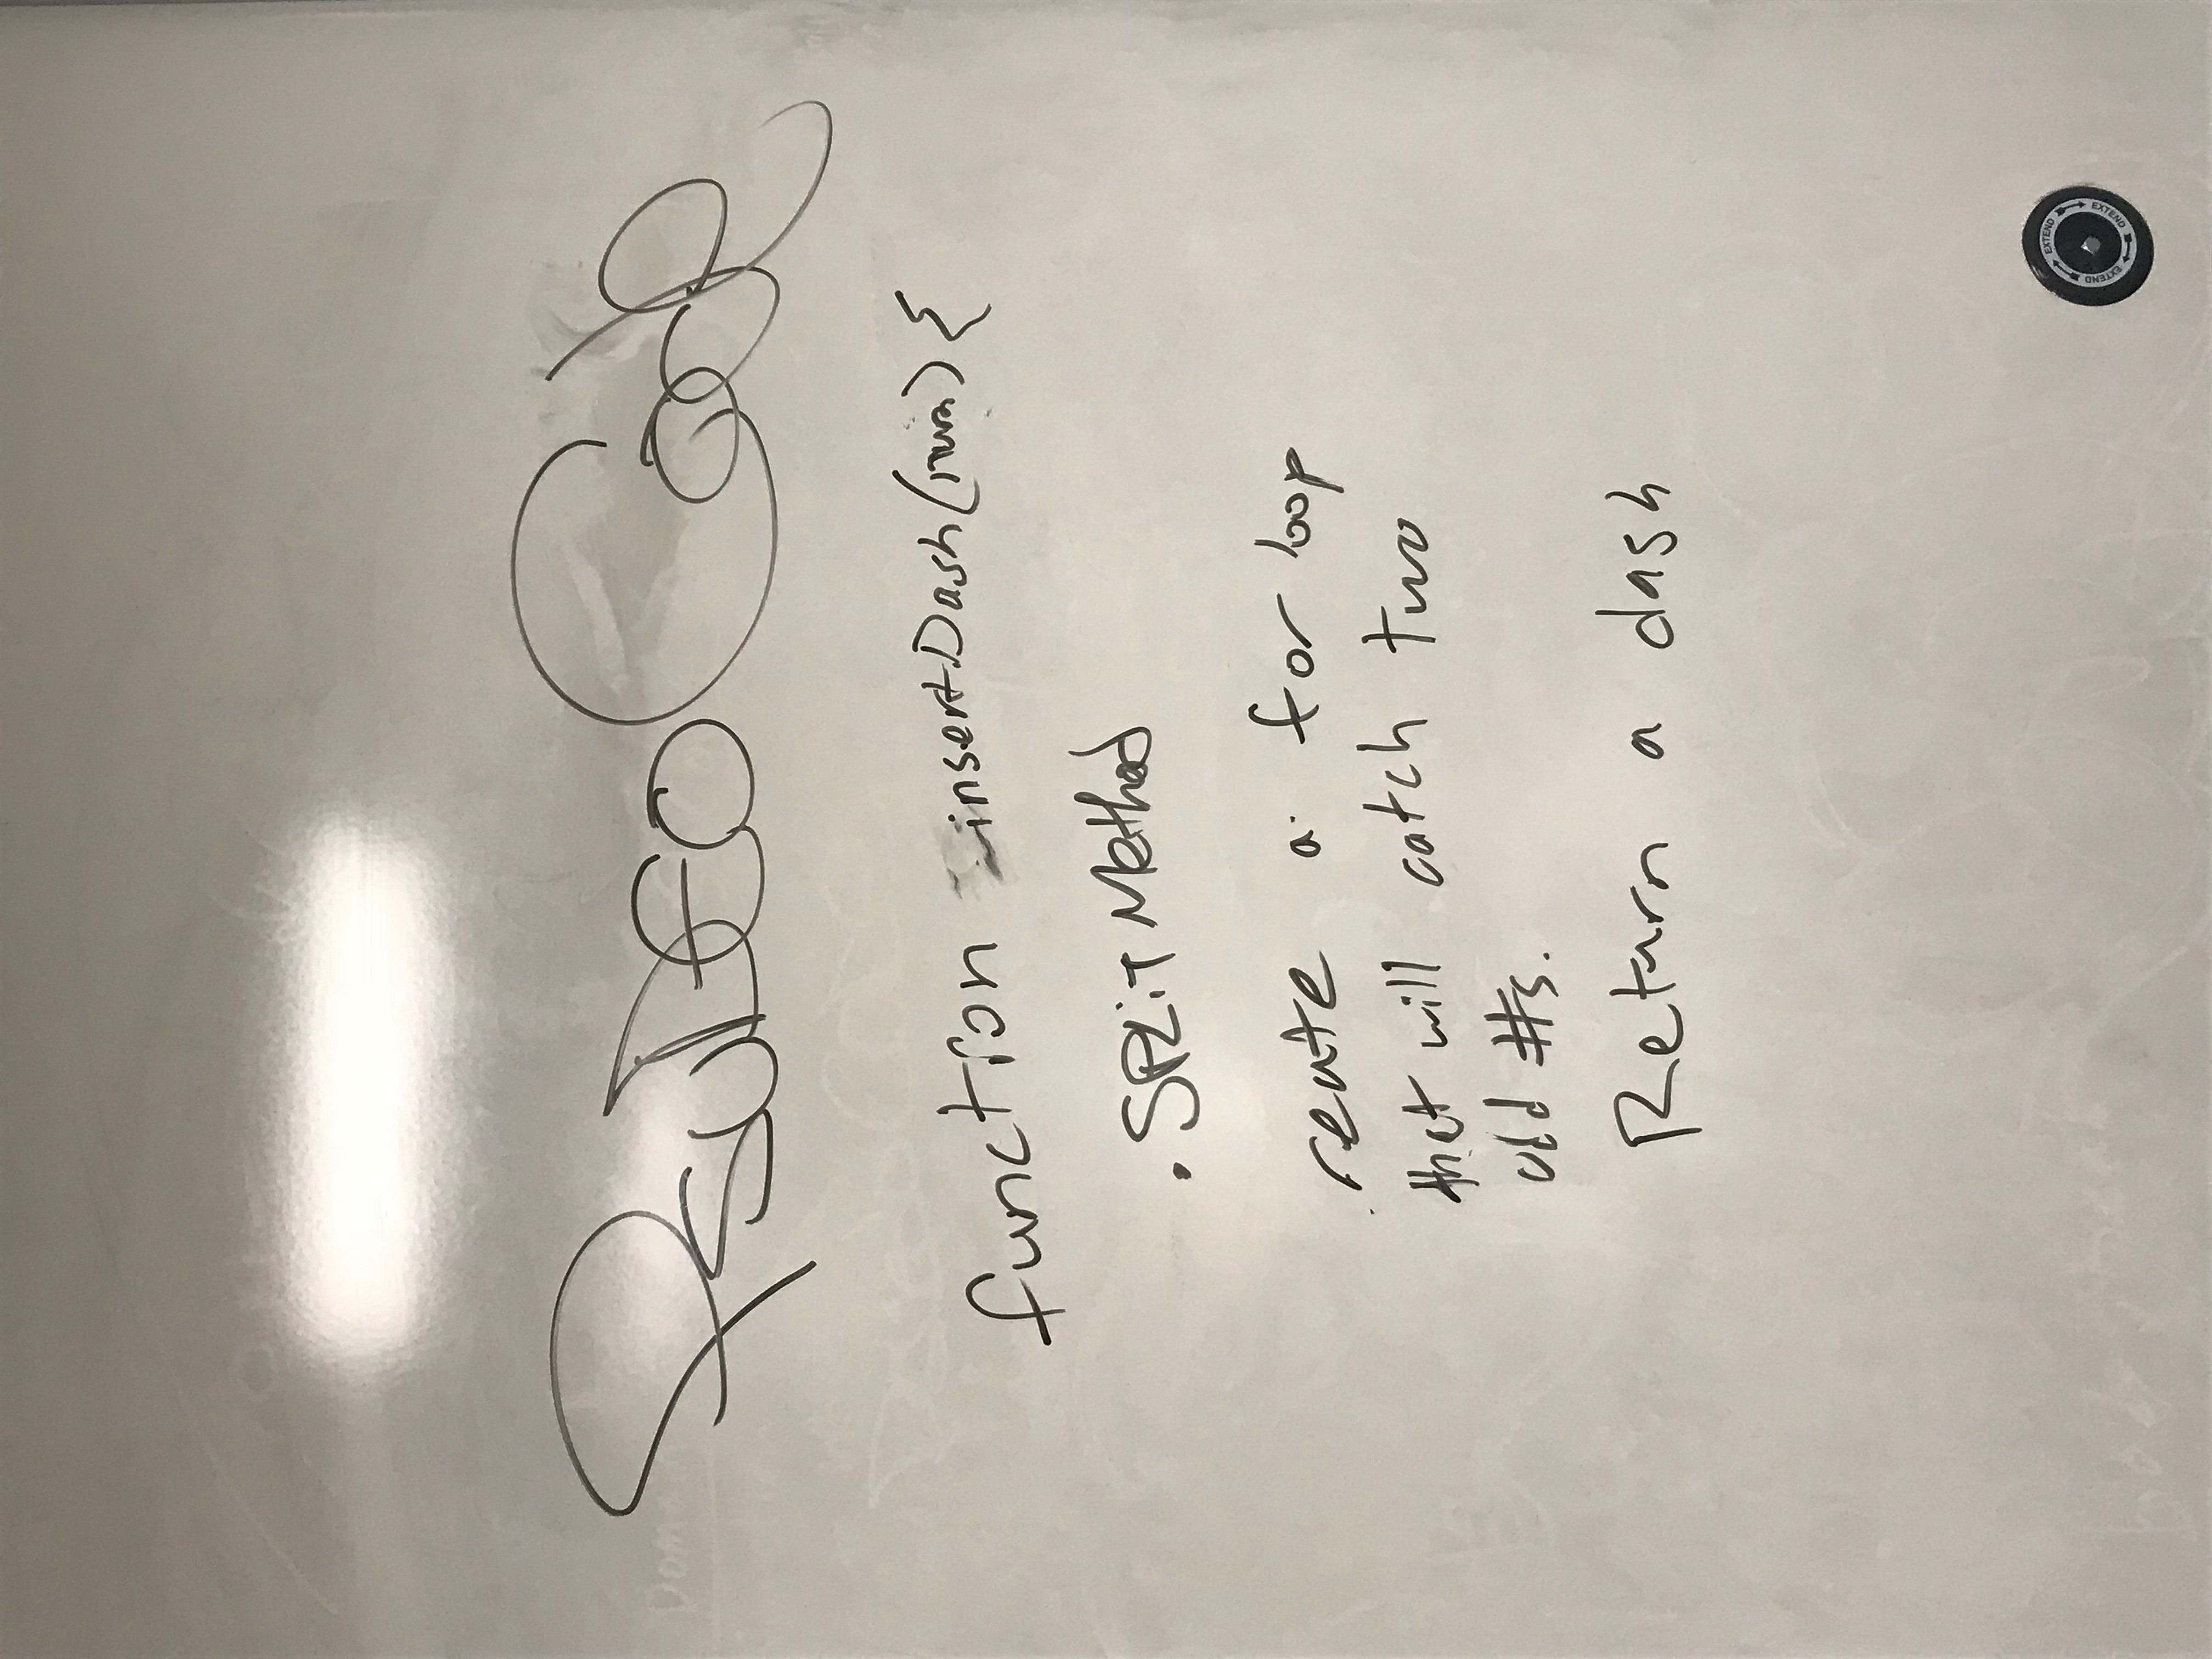 PsuDEO Code
function insertDash(num) {
. SPLiT Method
reate a for loop
that will catch two
odd #s.
Return a dash
EXTEND
EXTEND
EXTEND